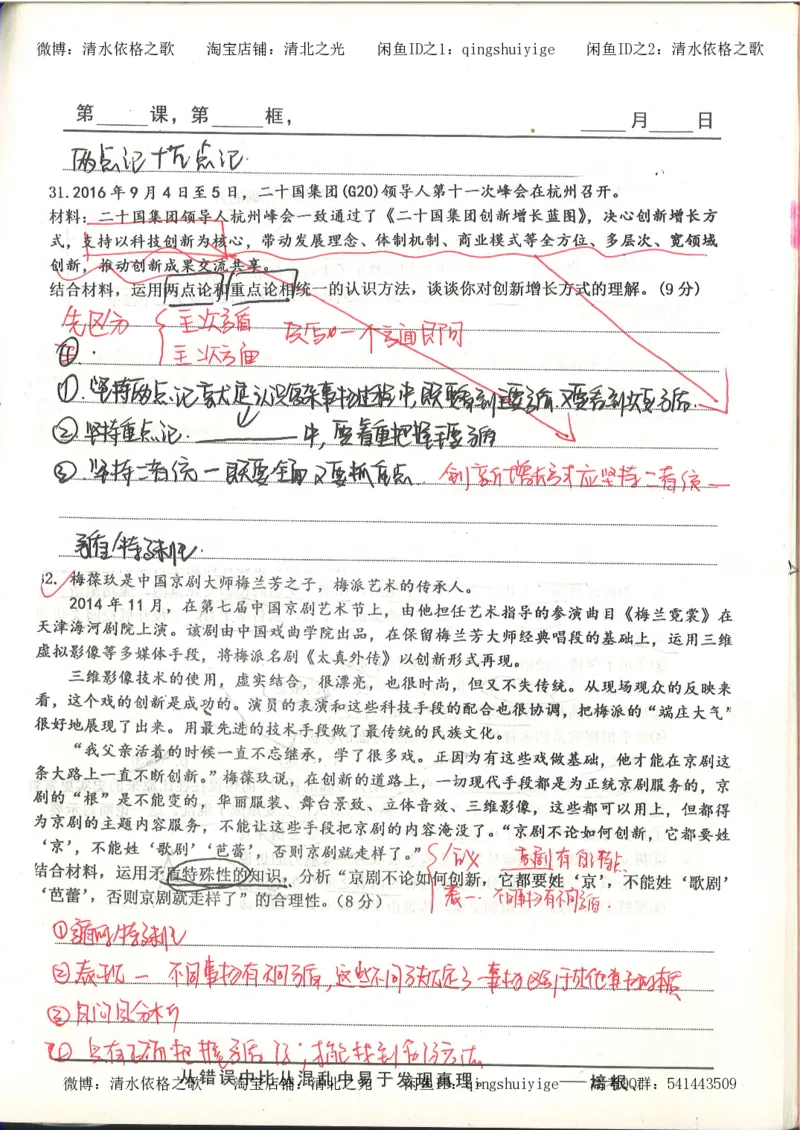 微博：清水依格之歌 淘宝店铺：清北之光 闲鱼ID之1：qingshuiyige 闲鱼ID之2：清水依格之歌
第____课，第____框， ____月____日
两点论 重点论
31.2016年9月4日至5日，二十国集团(G20)领导人第十一次峰会在杭州召开。
材料：二十国集团领导人杭州峰会一致通过了《二十国集团创新增长蓝图》，决心创新增长方
式，支持以科技创新为核心，带动发展理念、体制机制、商业模式等全方位、多层次、宽领域
创新，推动创新成果交流共享。
结合材料，运用两点论和重点论相统一的认识方法，谈谈你对创新增长方式的理解。(9分)
先区分 主次矛盾 一个方面即可
主次方面
①坚持两点论 就是认识复杂事物过程中，既要看到主要矛盾，又要看到次要矛盾
②坚持重点论 中，要着重把握主要矛盾
③坚持二者统一 既要全面又要抓重点 创新增长方式应坚持二者统一
矛盾特殊性
32. 梅葆玖是中国京剧大师梅兰芳之子，梅派艺术的传承人。
2014年11月，在第七届中国京剧艺术节上，由他担任艺术指导的参演曲目《梅兰霓裳》在
天津海河剧院上演。该剧由中国戏曲学院出品，在保留梅兰芳大师经典唱段的基础上，运用三维
虚拟影像等多媒体手段，将梅派名剧《太真外传》以创新形式再现。
三维影像技术的使用，虚实结合，很漂亮，也很时尚，但又不失传统。从现场观众的反映来
看，这个戏的创新是成功的。演员的表演和这些科技手段的配合也很协调，把梅派的“端庄大气”
很好地展现了出来。用最先进的技术手段做了最传统的民族文化。
“我父亲活着的时候一直不忘继承，学了很多戏。正因为有这些戏做基础，他才能在京剧这
条大路上一直不断创新。”梅葆玖说，在创新的道路上，一切现代手段都是为正统京剧服务的，京
剧的“根”是不能变的，华丽服装、舞台景致、立体音效、三维影像，这些都可以用上，但都得
为京剧的主题内容服务，不能让这些手段把京剧的内容淹没了。“京剧不论如何创新，它都要姓
‘京’，不能姓‘歌剧’‘芭蕾’，否则京剧就走样了。” 含义 京剧有自己特点
结合材料，运用矛盾特殊性的知识，分析“京剧不论如何创新，它都要姓‘京’，不能姓‘歌剧’
‘芭蕾’，否则京剧就走样了”的合理性。(8分) 表一 不同事物有不同矛盾
①矛盾的特殊性
②表现一 不同事物有不同矛盾，这些不同矛盾决定了一事物区别于其他事物的本质
③具问具分析
④只有正确把握矛盾，才能找到方法
从错误中比从混乱中易于发现真理。——培根
微博：清水依格之歌 淘宝店铺：清北之光 闲鱼ID：qingshuiyige QQ群：541443509